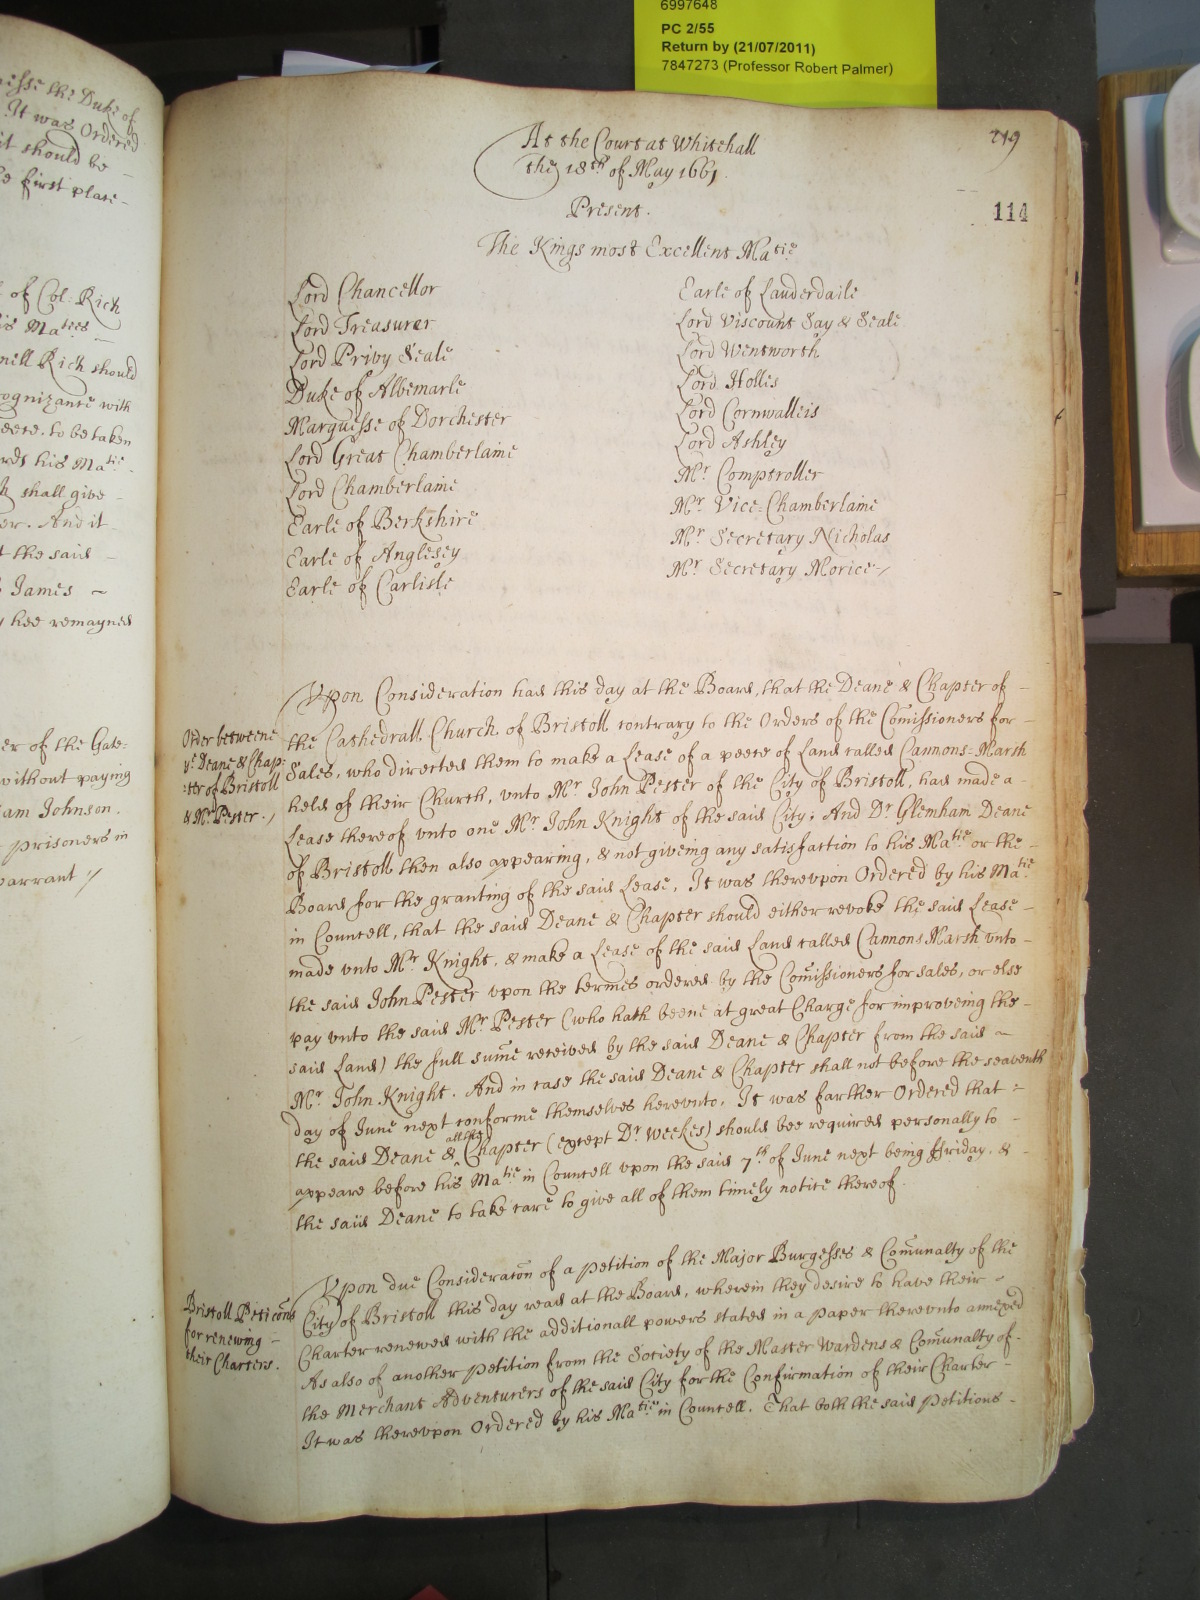 6997648
PC 2/55
Return by (21/07/2011)
7847273 (Professor Robert Palmer)
esse the Duke of
It was Ordered
it should be -
e first place -
of Col: Rich
is Matees -
nell Rich should
ognizance with
eete. to be taken
rds his Matie.
shall give -
er. And it
t the said -
James ~
hee remayned
er of the Gate:
without paying
iam Johnson.
prisoners in
warrant ./
At the Court at Whitehall
the 18th of May 1661.
219
Present.
114
The Kings most Excellent Matie
Lord Chancellor
Lord Treasurer
Lord Privy Seale
Duke of Albemarle
Marquesse of Dorchester
Lord Great Chamberlaine
Lord Chamberlaine
Earle of Berkshire
Earle of Anglesey
Earle of Carlisle
Earle of Lauderdaile
Lord Viscount Say & Seale
Lord Wentworth
Lord Holles
Lord Cornwalleis
Lord Ashley
Mr Comptroller
Mr Vice-Chamberlaine
Mr Secretary Nicholas
Mr Secretary Morice-/
Order betweene
ye Deane & Chap:
:ter of Bristoll
& Mr Pester./
Vpon Consideration had this day at the Board, that the Deane & Chapter of -
the Cathedrall Church of Bristoll contrary to the Orders of the Comissioners for -
Sales, who directed them to make a Lease of a peece of Land called Cannons-Marsh
held of their Church, vnto Mr John Pester of the City of Bristoll, had made a -
Lease thereof vnto one Mr John Knight of the said City; And Dr Glemham Deane
of Bristoll then also appearing, & not giveing any satisfaction to his Matie or the -
Board for the granting of the said Lease. It was therevpon Ordered by his Matie
in Councell, that the said Deane & Chapter should either revoke the said Lease -
made vnto Mr Knight, & make a Lease of the said Land called Cannons Marsh vnto -
the said John Pester vpon the termes ordered by the Comissioners for sales, or else
pay vnto the said Mr Pester (who hath beene at great Charge for improveing the -
said Land) the full sume received by the said Deane & Chapter from the said ~
Mr John Knight. And in case the said Deane & Chapter shall not before the seaventh
day of June next conforme themselves herevnto, It was farther Ordered that -
the said Deane & all the Chapter (except Dr Weekes) should bee required personally to -
appeare before his Matie in Councell vpon the said 7th of June next being ffriday, & -
the said Deane to take care to give all of them timely notice thereof.
Bristoll Peticons
for renewing -
their Charters.
Vpon due Consideracon of a petition of the Major Burgesses & Comunalty of the
City of Bristoll this day read at the Board, wherein they desire to have their -
Charter renewed with the additionall powers stated in a paper therevnto annexed
As also of another petition from the Society of the Master Wardens & Comunalty of -
the Merchant Adventurers of the said City for the Confirmation of their Charter -
It was therevpon Ordered by his Matie in Councell. That both the said Petitions -